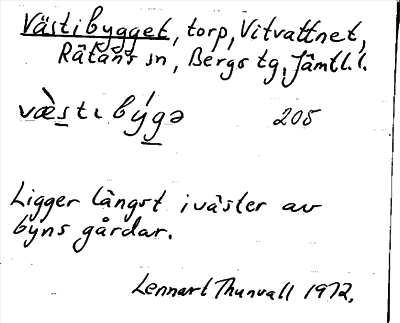 Västibygget, torp, Vitvattnet,
Rätans sn, Bergs tg, Jämtl. l.
væ̀s̲tɩ bý́g̲ə 205
Ligger längst i väster av
byns gårdar.
Lennart Thunvall 1972.